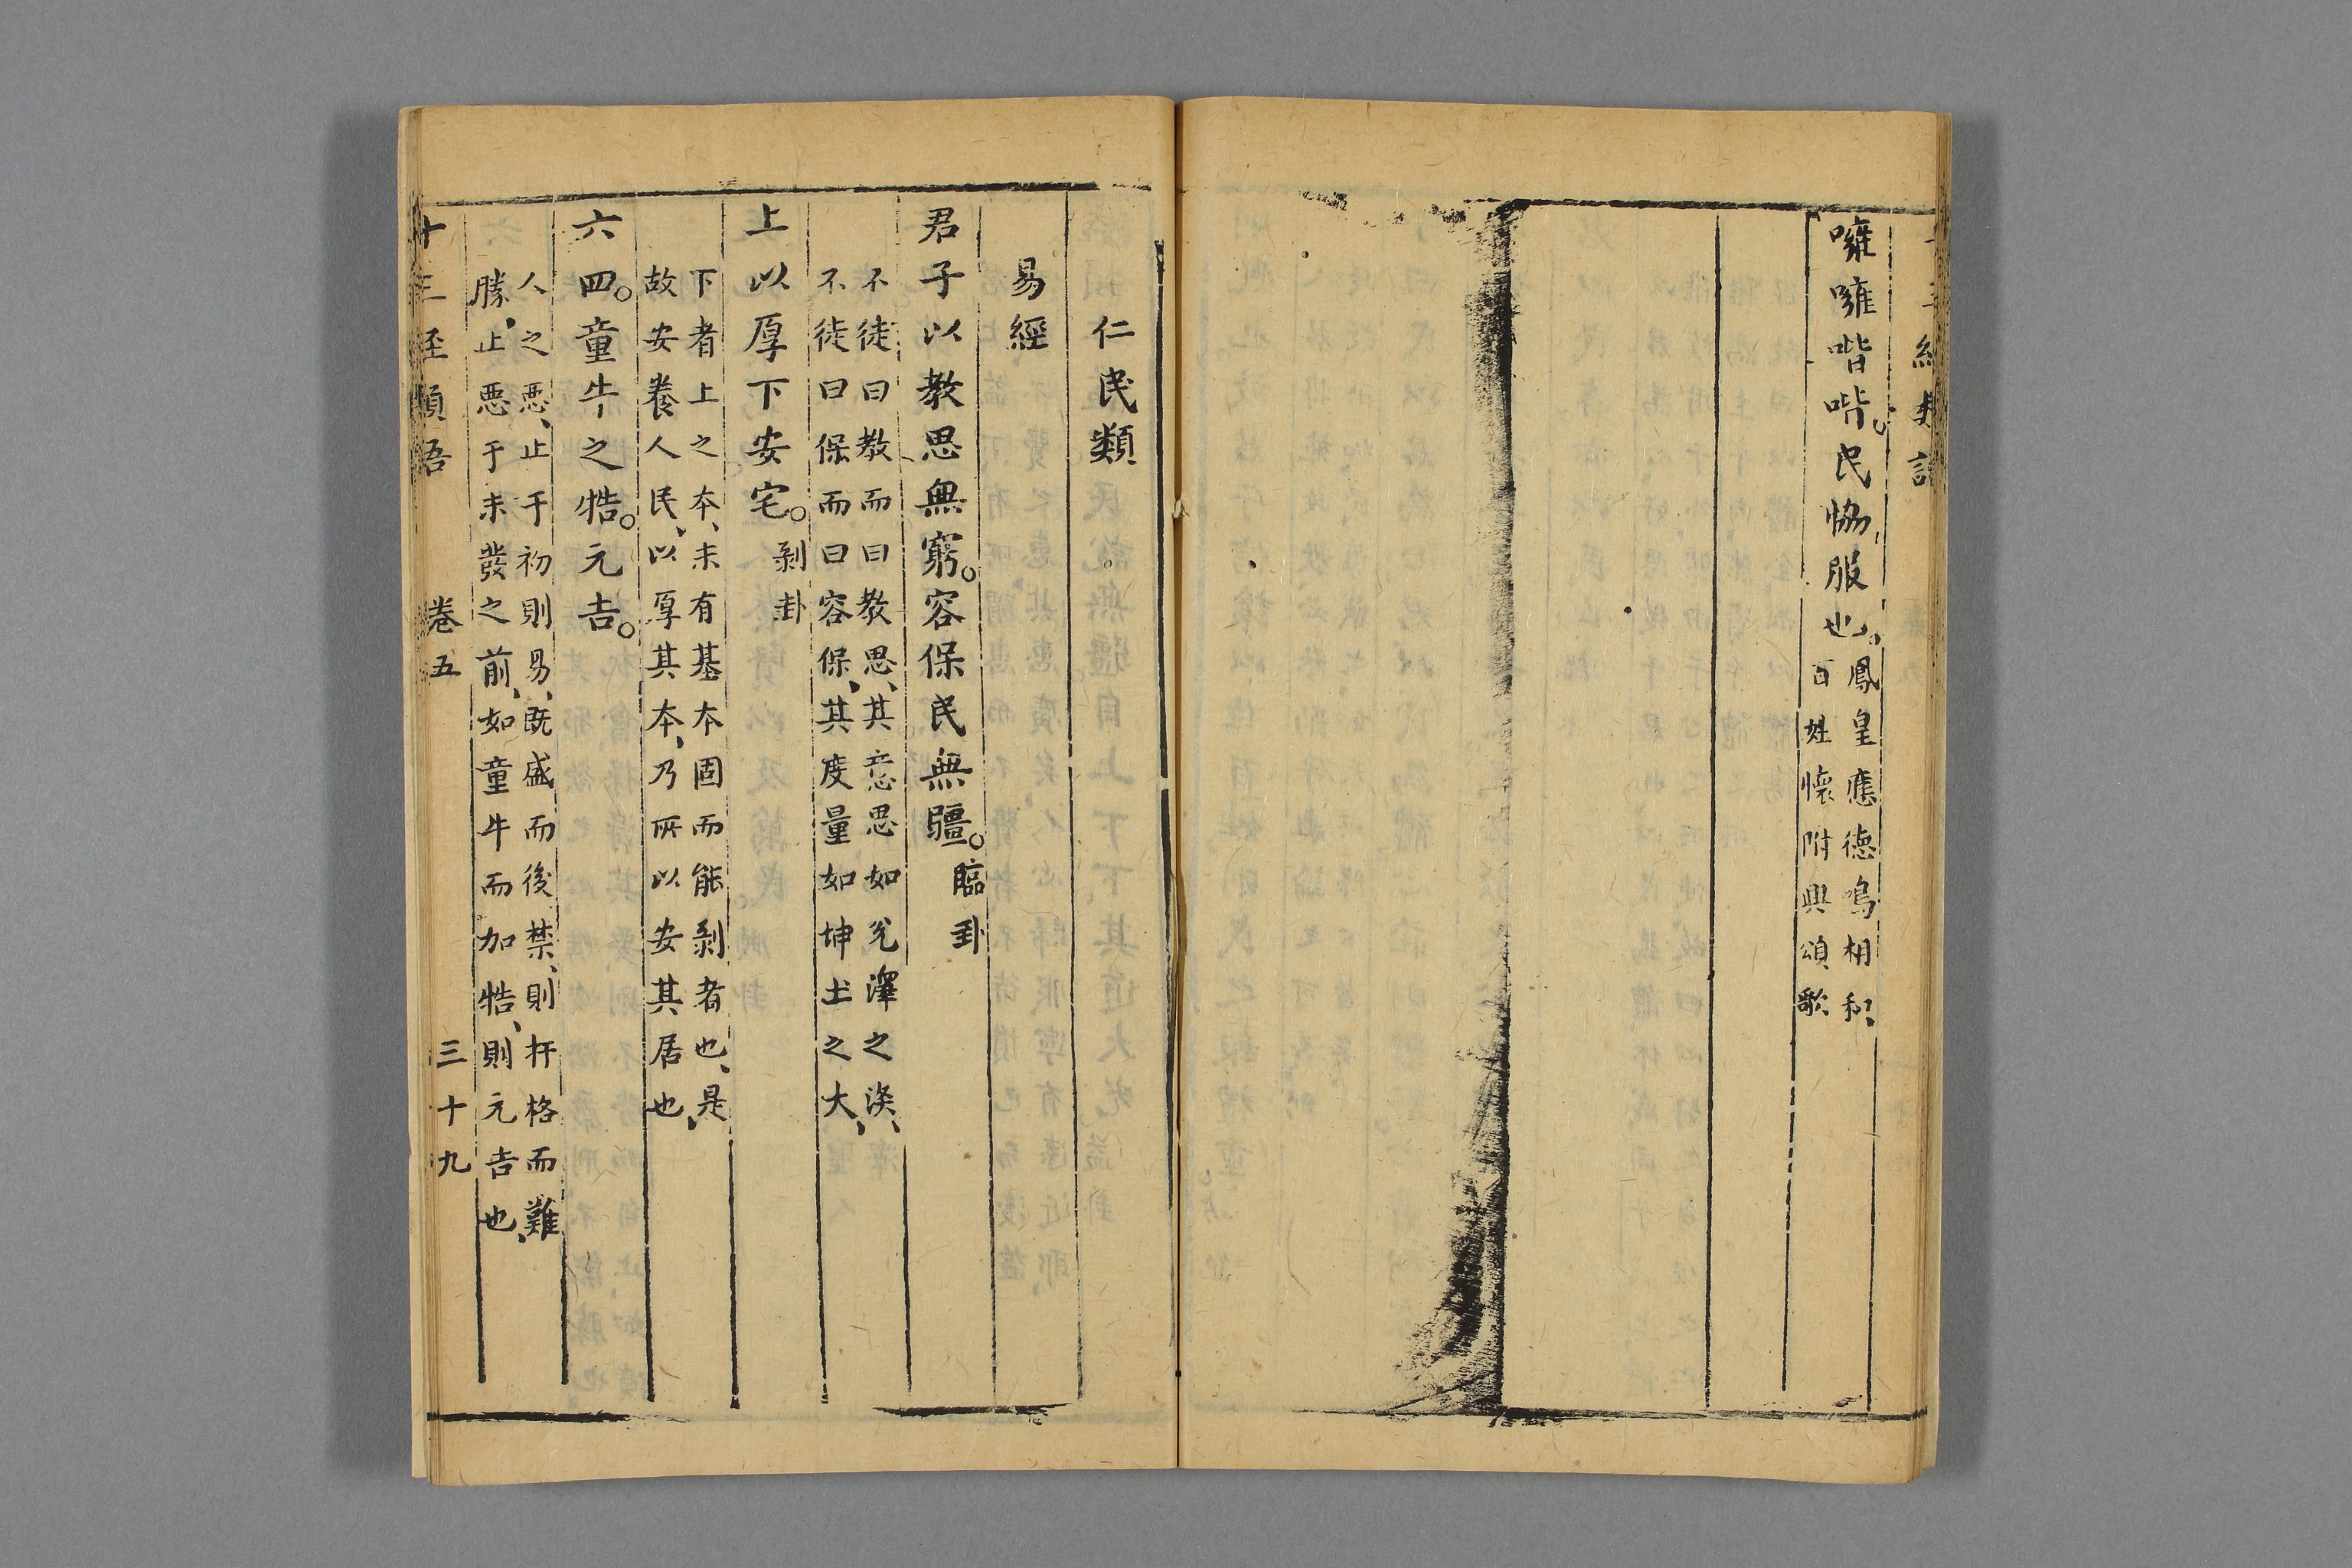 噰噰喈喈。民恊服也。鳳皇應德鳴相和、
百姓懷附興頌歌
仁民類
易經
君子以教思無窮。容保民無疆。臨卦
不徒曰教而曰教思、其意思如兊澤之深、
不徒曰保而曰容保、其度量如坤土之大、
上以厚下安宅。剝卦
下者上之本、未有基本固而能剝者也、是
故安養人民、以厚其本、乃所以安其居也、
六四。童牛之牿。元吉。
人之惡、止于初則易、既盛而後禁、則扞格而難
勝、止惡于未發之前、如童牛而加牿、則元吉也、
十三經類語 卷五 三十九